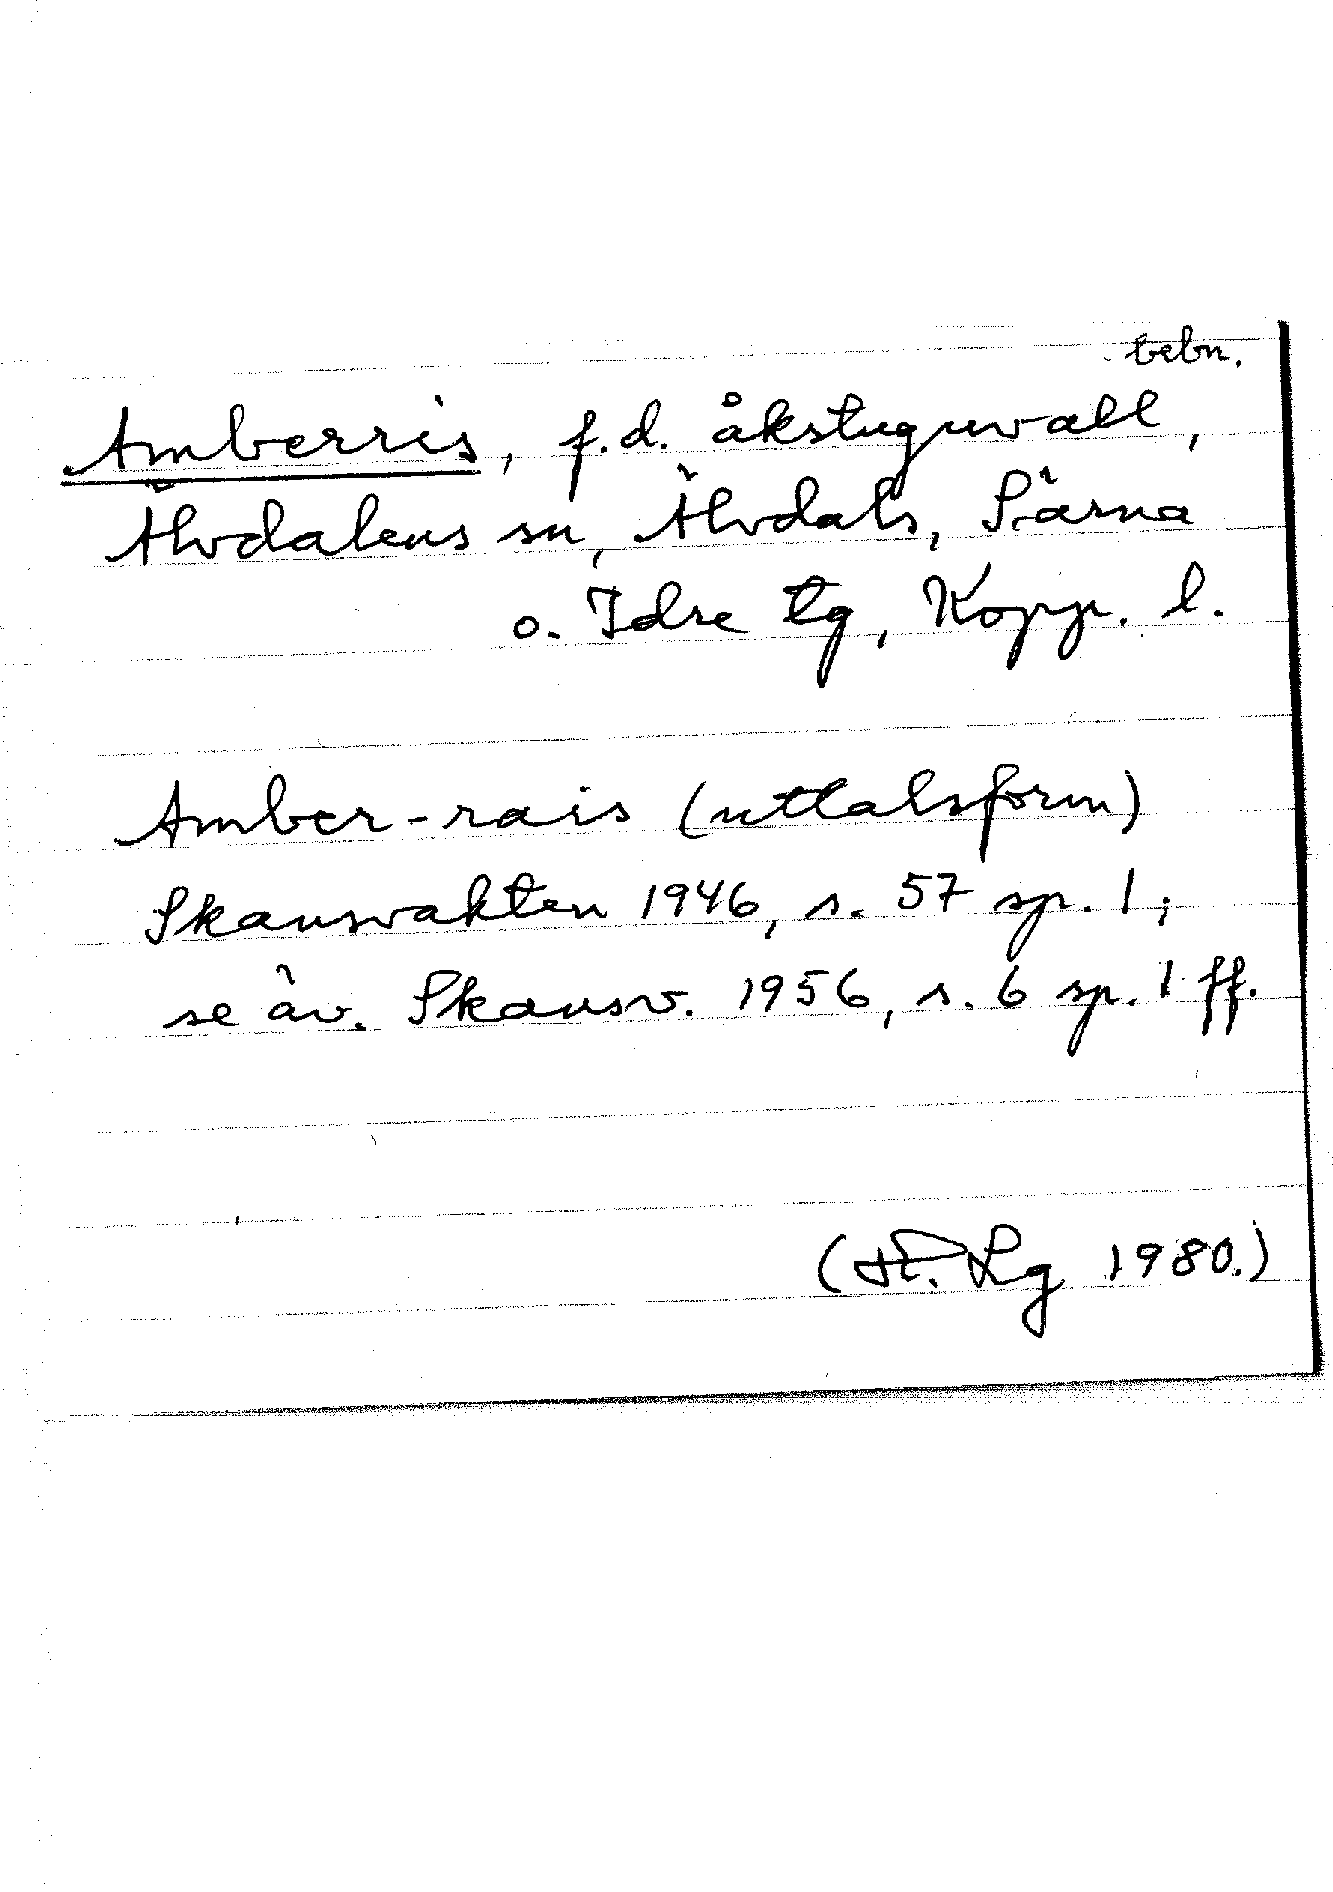 bebn.
Amberris, f.d. åkstuguvall,
Älvdalens sn, Älvdals, Särna
o. Idre tg, Kopp. l.
Amber-rais (uttalsform)
Skansvakten 1946, s. 57 sp. 1;
se äv. Skansv. 1956, s. 6 sp. 1 ff.
Lg 1980.)